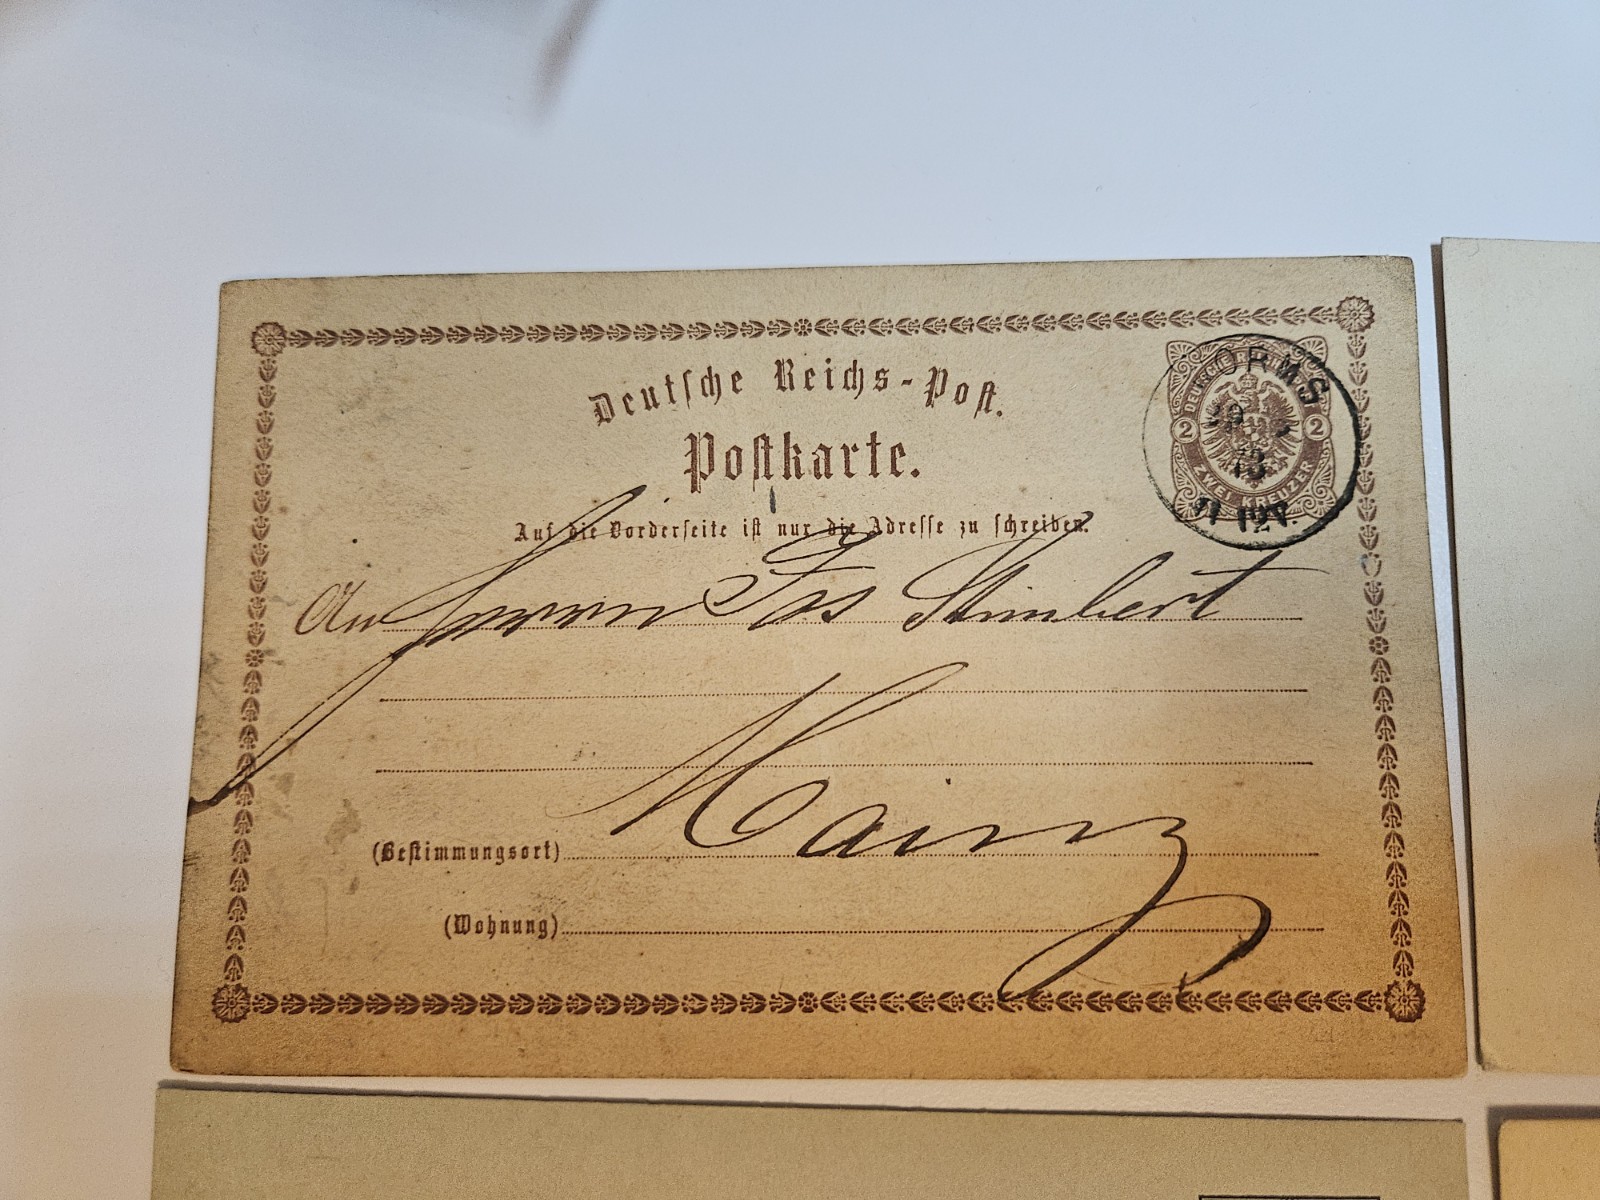 Deutsche Reichs-Post.
Postkarte.
Auf die Vorderseite ist nur die Adresse zu schreiben.
DEUTSCHE REICHS
2 2
ZWEI KREUZER
ORMS
73
An Herrn Jos Stimbert
Mainz
(Bestimmungsort)
(Wohnung)